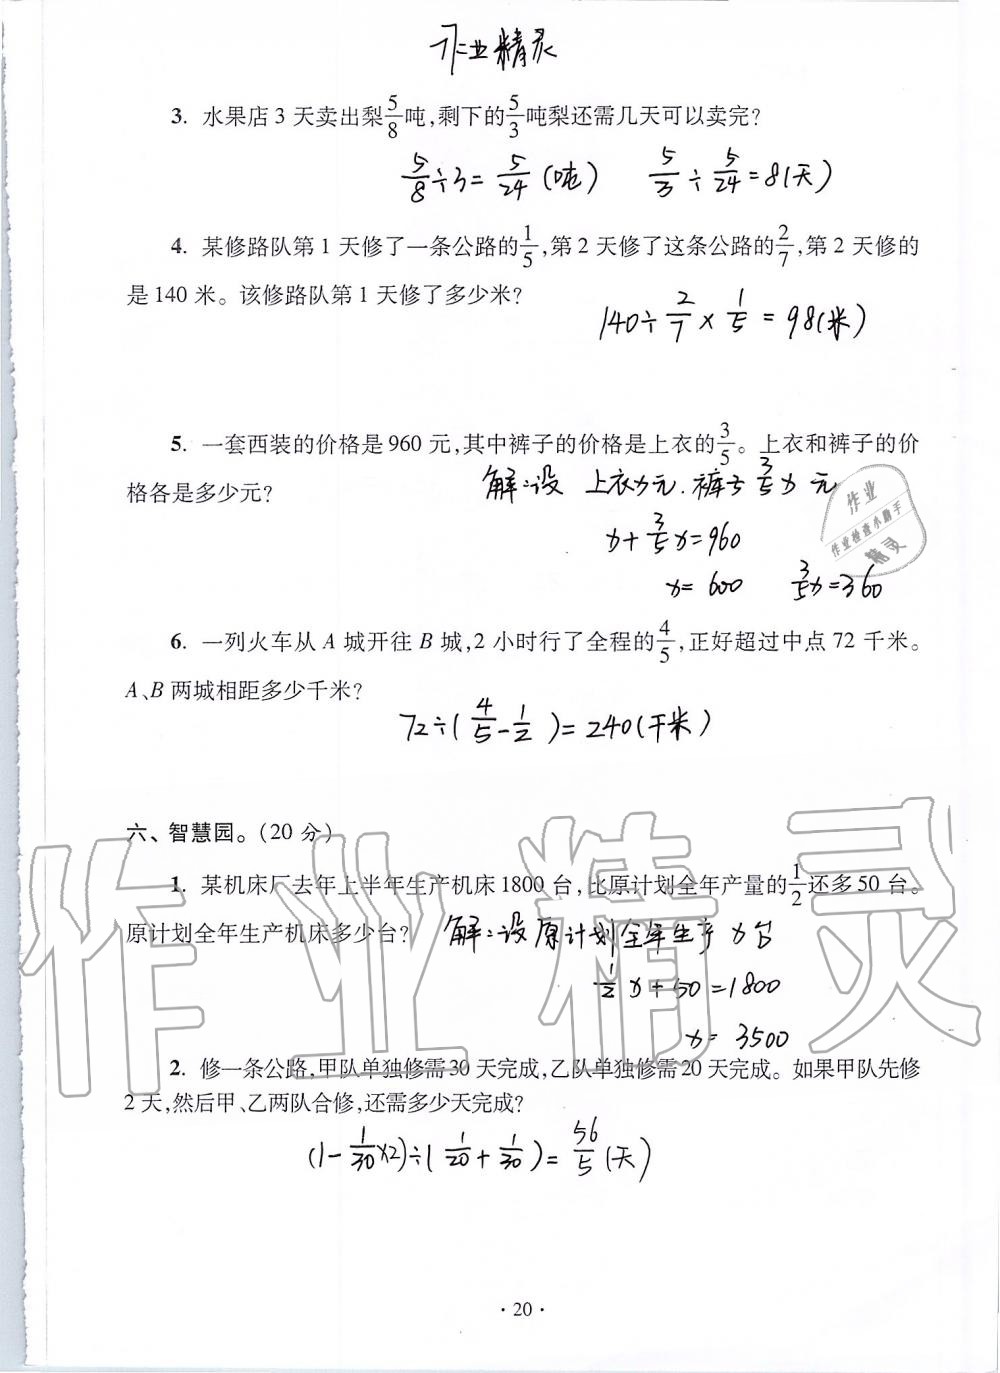 作业精灵
3. 水果店3天卖出梨5/8吨,剩下的5/3吨梨还需几天可以卖完?
5/8÷3=5/24(吨) 5/3÷5/24=8(天)
4. 某修路队第1天修了一条公路的1/5,第2天修了这条公路的2/7,第2天修的
是140米。该修路队第1天修了多少米?
140÷2/7×1/5=98(米)
5. 一套西装的价格是960元,其中裤子的价格是上衣的3/5。上衣和裤子的价
格各是多少元?
解:设 上衣x元.裤子3/5x元
x+3/5x=960
x=600 3/5x=360
作业
作业检查小助手
精灵
6. 一列火车从A城开往B城,2小时行了全程的4/5,正好超过中点72千米。
A、B两城相距多少千米?
72÷(4/5-1/2)=240(千米)
六、智慧园。(20分)
1. 某机床厂去年上半年生产机床1800台,比原计划全年产量的1/2还多50台。
原计划全年生产机床多少台?
解:设原计划全年生产x台
1/2x+50=1800
x=3500
2. 修一条公路,甲队单独修需30天完成,乙队单独修需20天完成。如果甲队先修
2天,然后甲、乙两队合修,还需多少天完成?
(1-1/30×2)÷(1/20+1/30)=56/5(天)
作业精灵
·20·